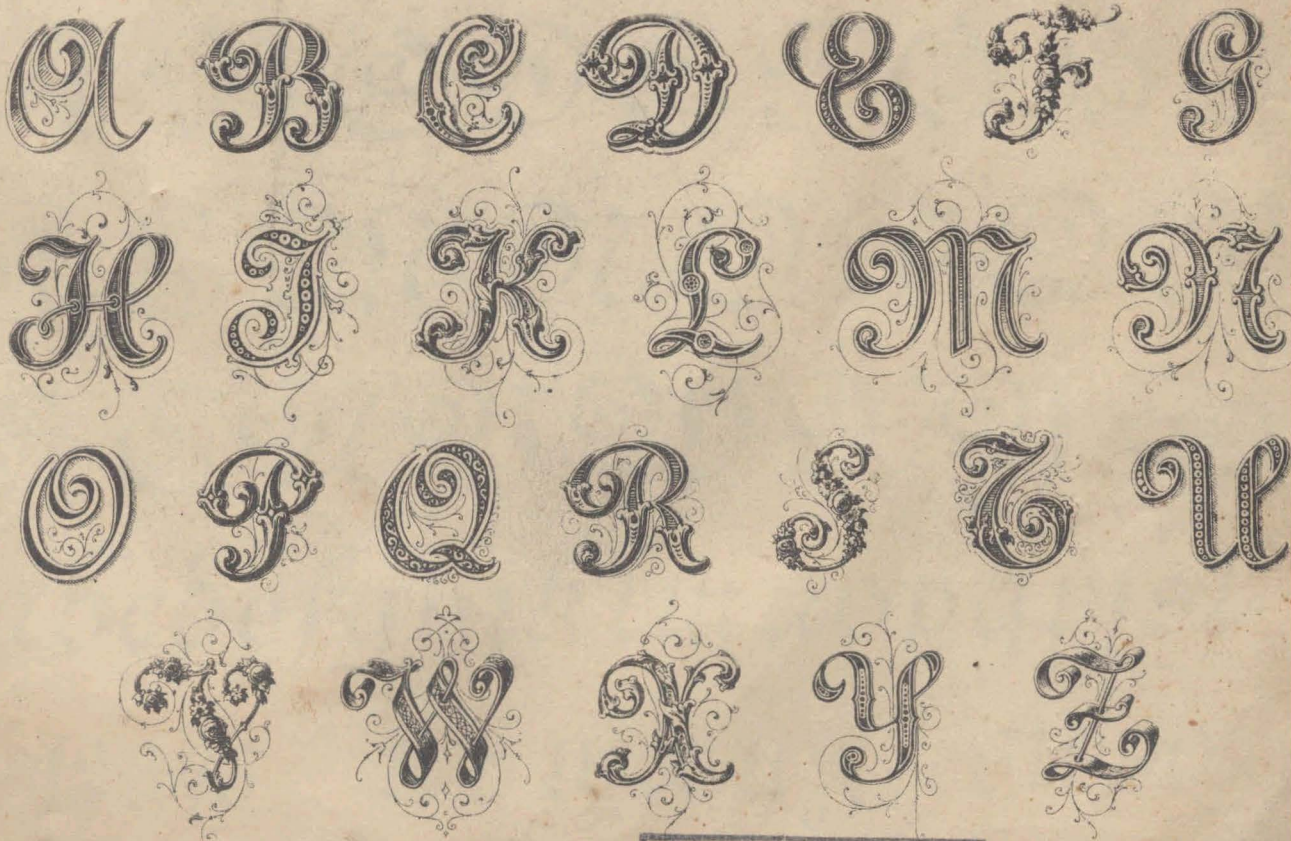 A B C D E F G
H J K L M N
O P Q R S T U
V W X Y Z